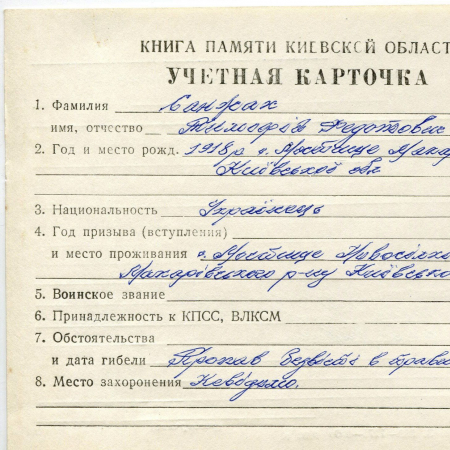 КНИГА ПАМЯТИ КИЕВСКОЙ ОБЛАСТ
УЧЕТНАЯ КАРТОЧКА
1. Фамилия
имя, отчество Тимофій Федотович
2. Год и место рожд. 1918 р с. Мостище Мака
Київської обл
3. Национальность Українець
4. Год призыва (вступления)
и место проживания с. Мостище
Макарівського р-ну Київсько
5. Воинское звание
6. Принадлежность к КПСС, ВЛКСМ
7. Обстоятельства
и дата гибели Пропав безвісті в трав
8. Место захоронения Невідомо.